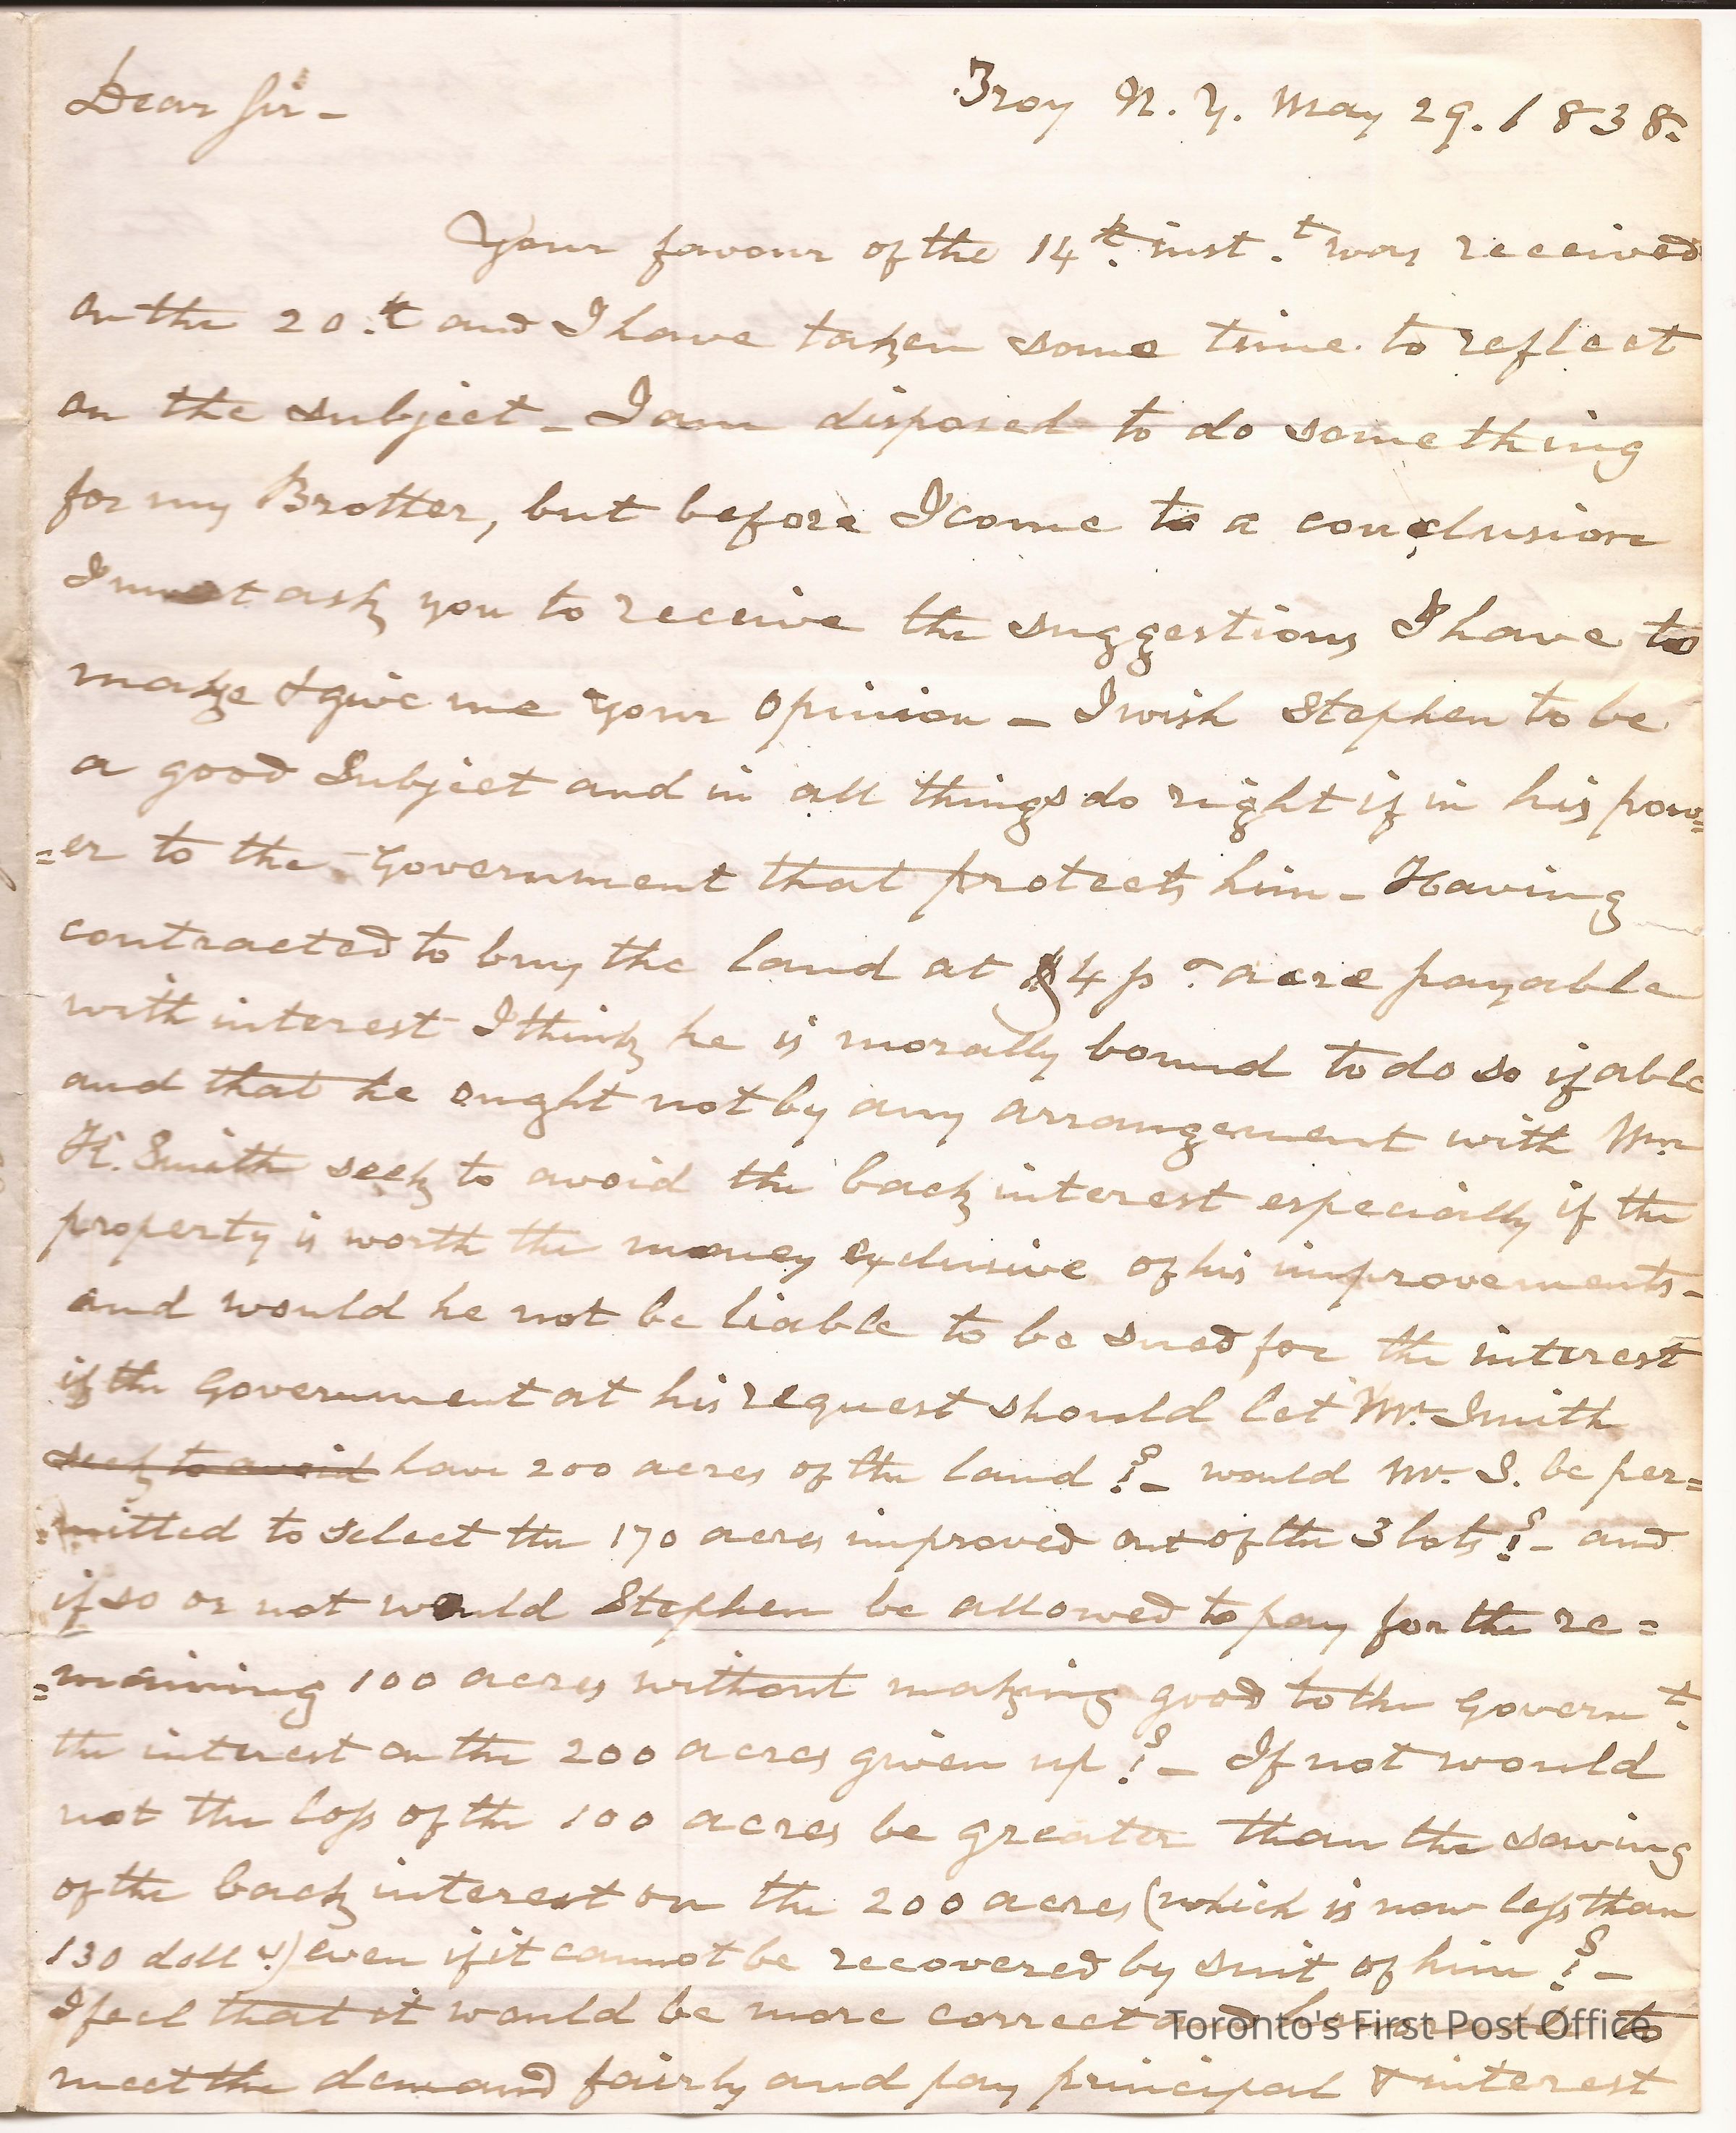 Dear Sir -
Troy N. Y. May 29. 1838.
Your favour of the 14th. inst.t was received
on the 20.th and I have taken some time to reflect
on the subject - I am disposed to do something
for my Brother, but before I come to a conclusion
I must ask you to receive the suggestions I have to
make & give me your opinion - I wish Stephen to be
a good Subject and in all things do right if in his pow=
=er to the Government that protects him - Having
contracted to buy the land at $4 pr. acre payable
with interest I think he is morally bound to do so if able
and that he ought not by any arrangement with Mr.
H. Smith seek to avoid the back interest especially if the
property is worth the money exclusive of his improvements -
and would he not be liable to be sued for the interest
if the Government at his request should let Mr. Smith
seek to avoid have 200 acres of the land? - would Mr. S. be per=
=mitted to select the 170 acres improved out of the 3 lots? - and
if so or not would Stephen be allowed to pay for the re=
=maining 100 acres without making good to the Governt.
the interest on the 200 acres given up? - If not would
not the loss of the 100 acres be greater than the saving
of the back interest on the 200 acres (which is now less than
130 dolls.) even if it cannot be recovered by suit of him? -
I feel that it would be more correct and to
Toronto's First Post Office
meet the demand fairly and pay principal & interest